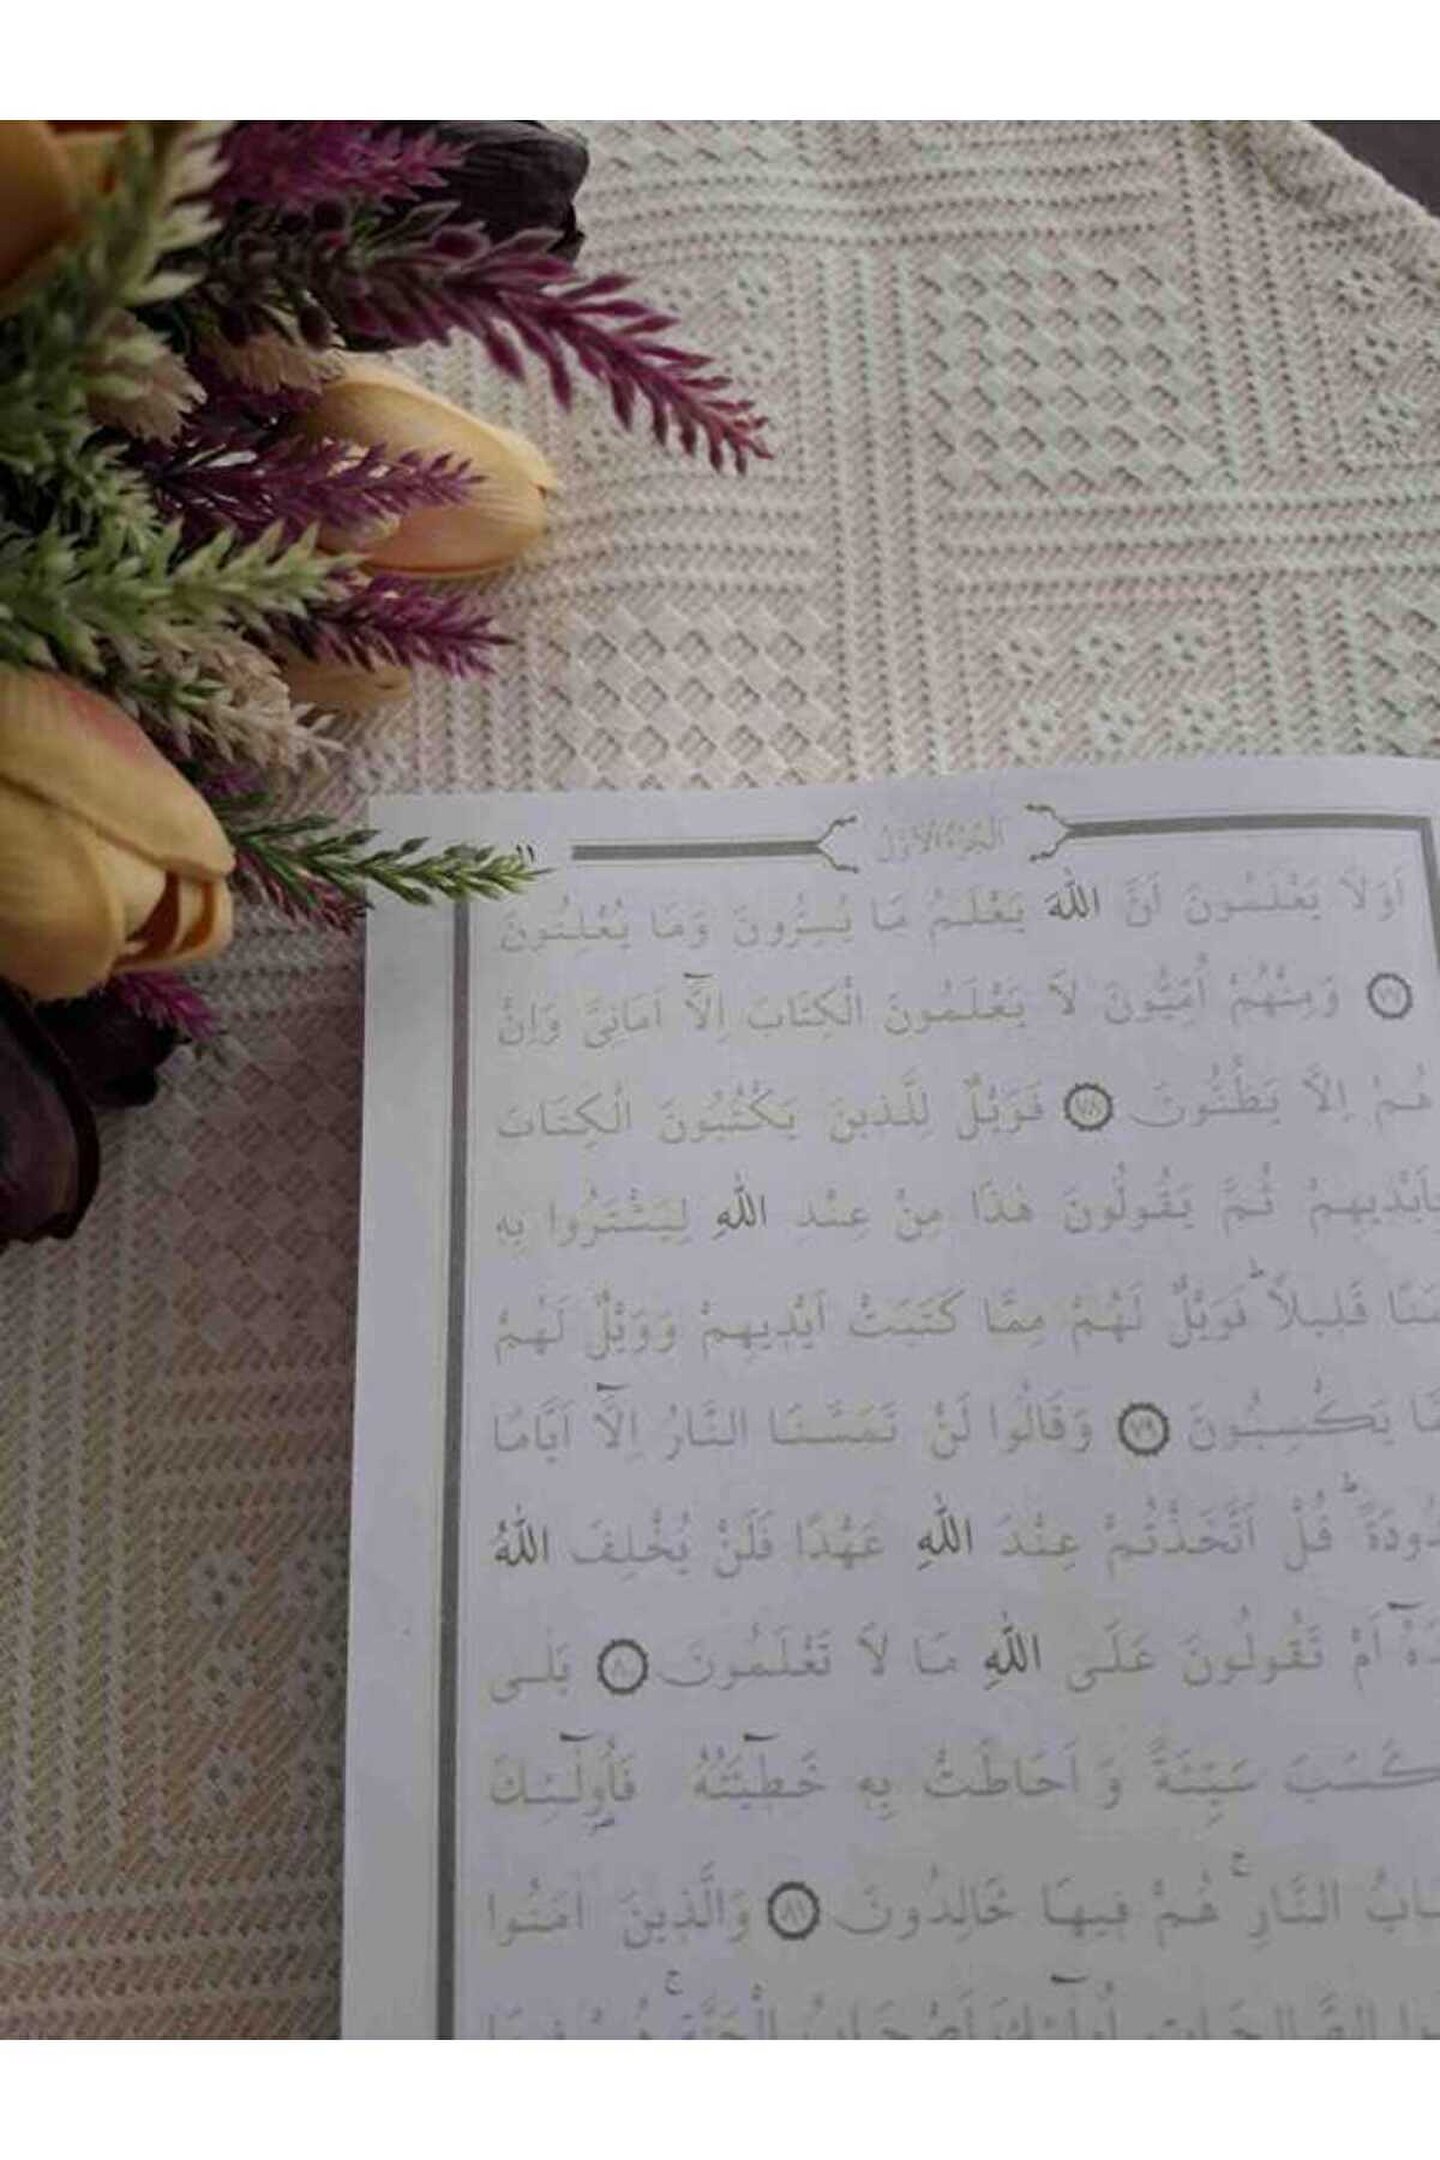 ١١
اَلْجُزْءُ الْاَوَّلُ
اَوَلَا يَعْلَمُونَ اَنَّ اللّٰهَ يَعْلَمُ مَا يُسِرُّونَ وَمَا يُعْلِنُونَ
﴿٧٧﴾ وَمِنْهُمْ اُمِّيُّونَ لَا يَعْلَمُونَ الْكِتَابَ اِلَّٓا اَمَانِيَّ وَاِنْ
هُمْ اِلَّا يَظُنُّونَ ﴿٧٨﴾ فَوَيْلٌ لِلَّذِينَ يَكْتُبُونَ الْكِتَابَ
بِاَيْدِيهِمْ ثُمَّ يَقُولُونَ هٰذَا مِنْ عِنْدِ اللّٰهِ لِيَشْتَرُوا بِهِ
قَلِيلًاۜ فَوَيْلٌ لَهُمْ مِمَّا كَتَبَتْ اَيْدِيهِمْ وَوَيْلٌ لَهُمْ
يَكْسِبُونَ ﴿٧٩﴾ وَقَالُوا لَنْ تَمَسَّنَا النَّارُ اِلَّٓا اَيَّامًا
قُلْ اَتَّخَذْتُمْ عِنْدَ اللّٰهِ عَهْدًا فَلَنْ يُخْلِفَ اللّٰهُ
اَمْ تَقُولُونَ عَلَى اللّٰهِ مَا لَا تَعْلَمُونَ ﴿٨٠﴾ بَلٰى
كَسَبَ سَيِّئَةً وَاَحَاطَتْ بِهِ خَطِٓيـَٔتُهُ فَاُو۬لٰٓئِكَ
النَّارِۚ هُمْ فِيهَا خَالِدُونَ ﴿٨١﴾ وَالَّذِينَ اٰمَنُوا
الصَّالِحَاتِ اُو۬لٰٓئِكَ اَصْحَابُ الْجَنَّةِۚ هُمْ فِيهَا